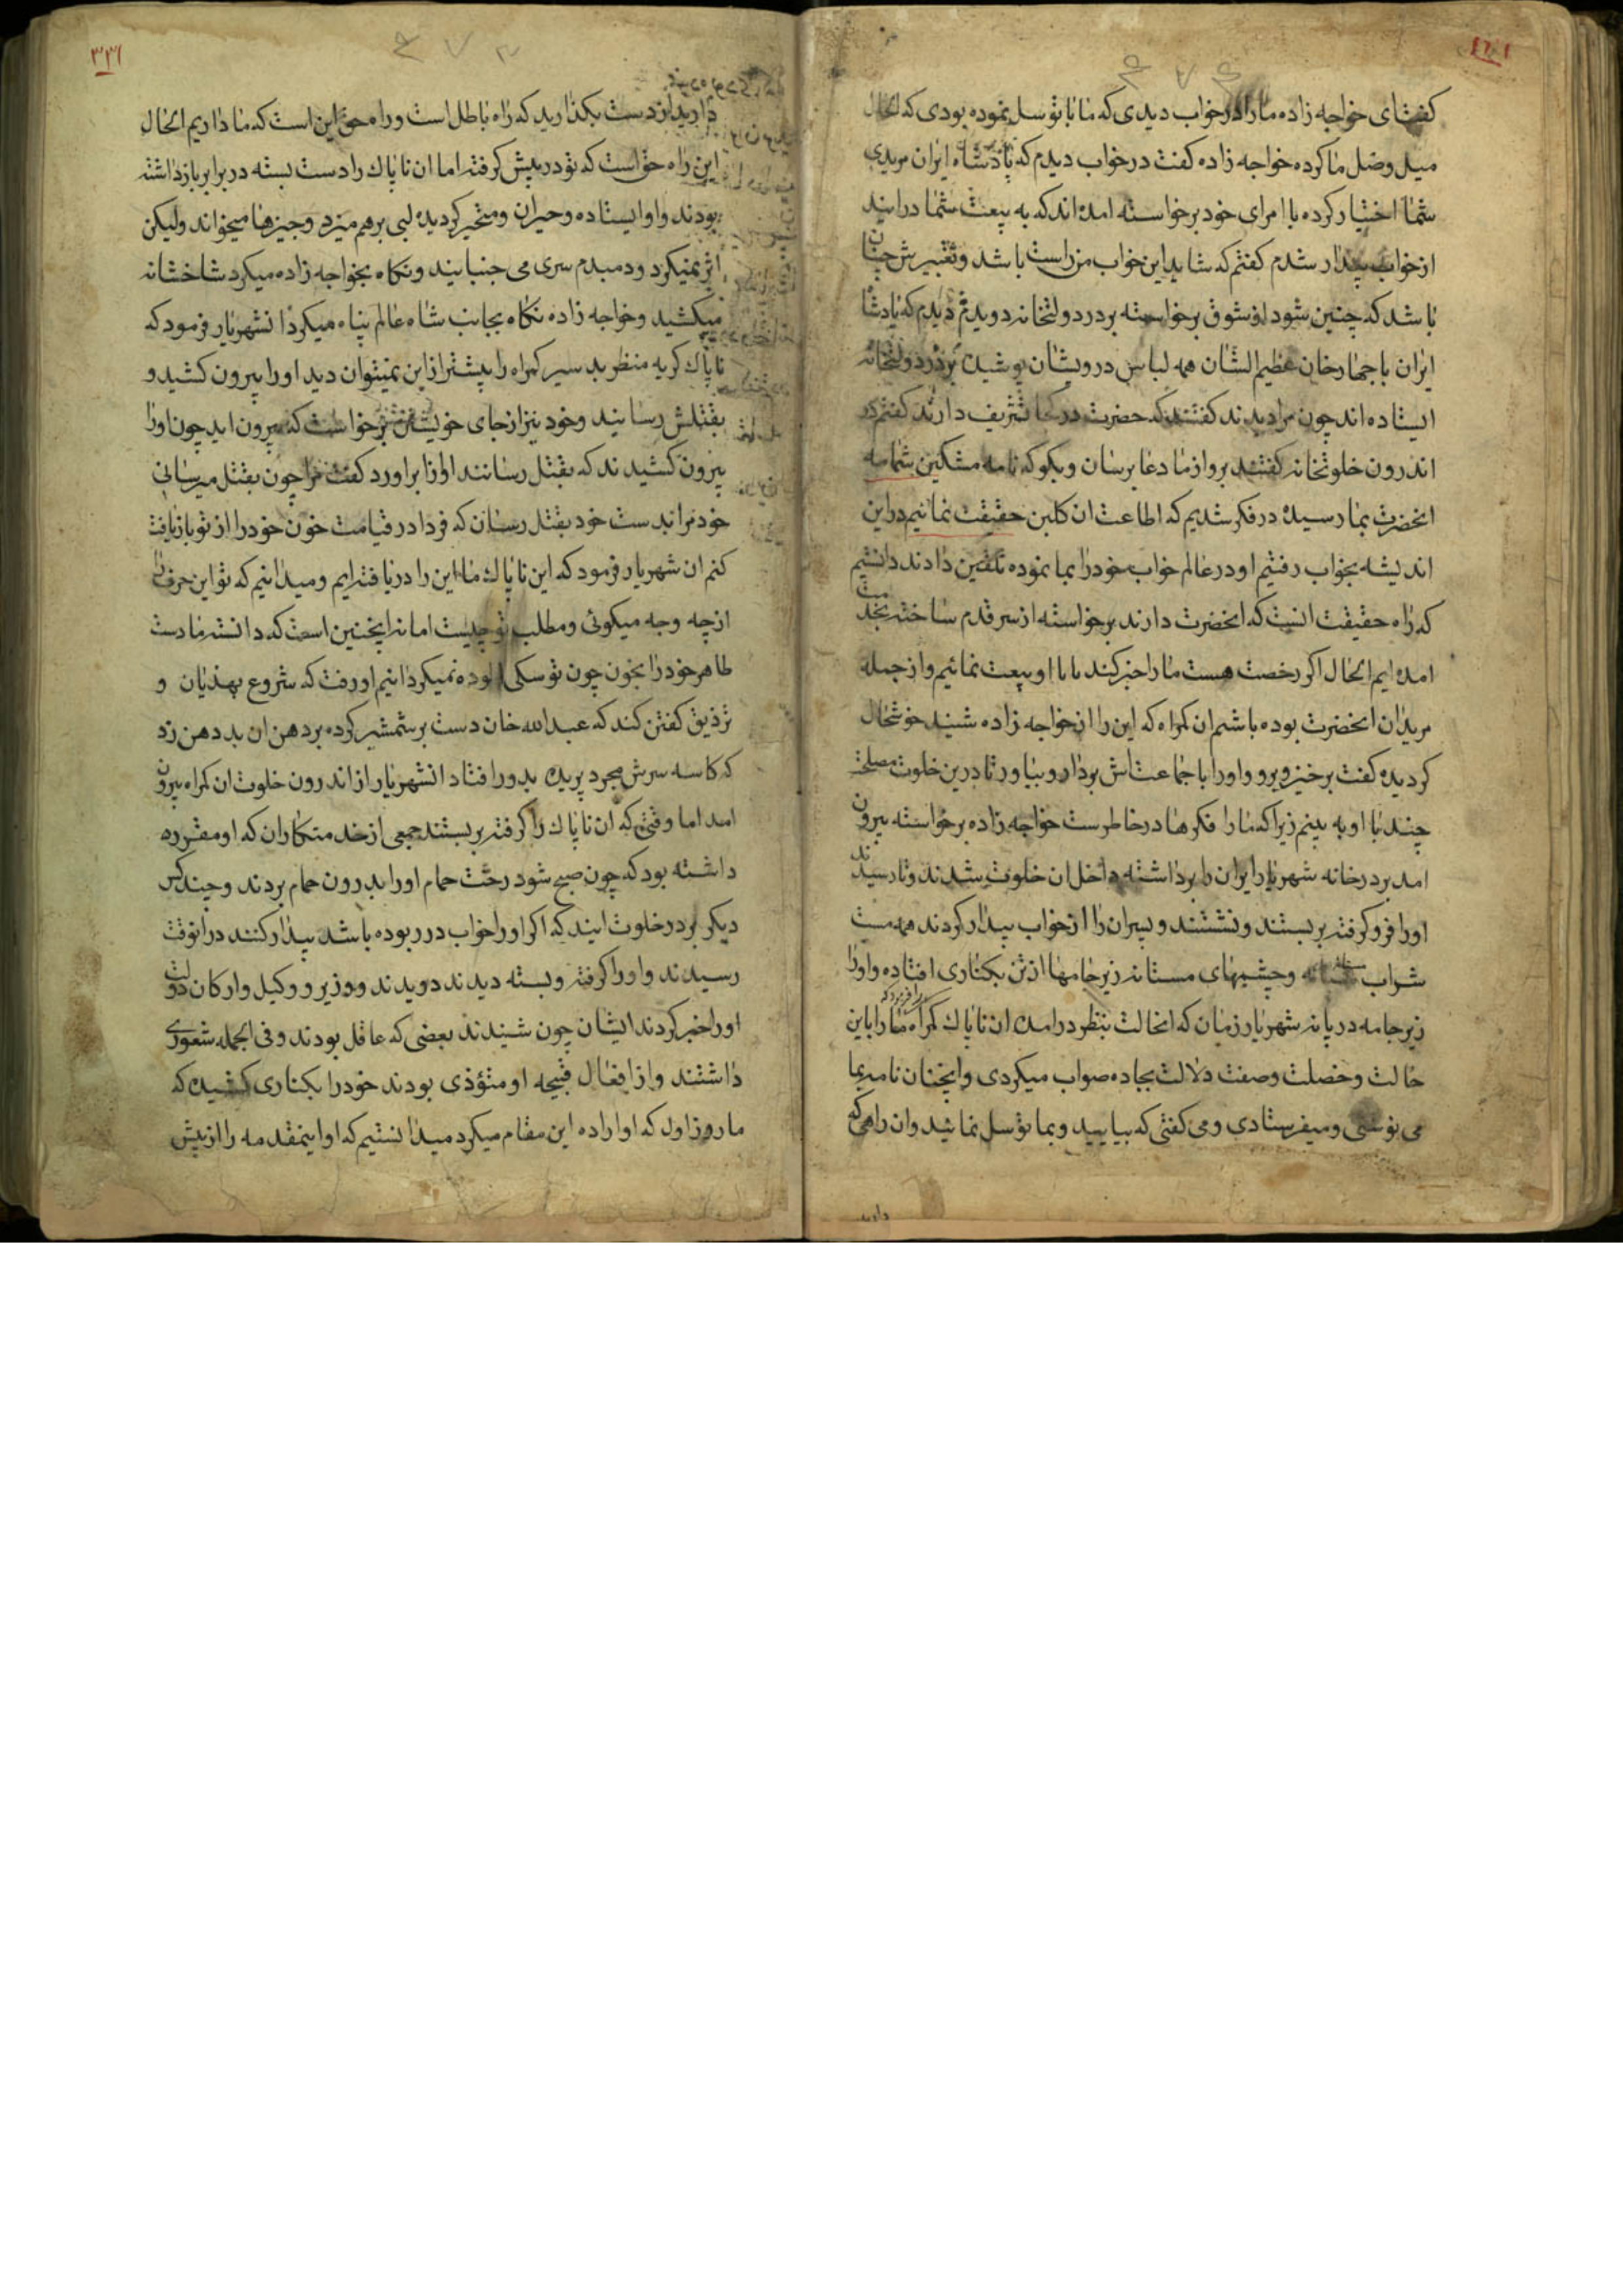 کفت ای خواجه زاده ما را در خواب دیدی که ما با تو سل نموده بودی که الحال
میل وصل ما کرده خواجه زاده کفت در خواب دیدم که پادشاه ایران مریدی
شما اختیار کرده با امرای خود برخواسته امده اند که به بیعت شما درایند
از خواب بیدار شدم کفتم که شاید این خواب من راست باشد و تعبیرش چنان
باشد که چنین شود از شوق برخواسته بر در دولتخانه دویدم دیدم که پادشاه
ایران با چهار خان عظیم الشان همه لباس درویشان پوشیده بر در دولتخانه
ایستاده اند چون مرا دیدند کفتند که حضرت در کجا تشریف دارند کفتم در
اندرون خلوتخانه کفتند برو از ما دعا برسان و بکو که نامه مشکین شمامه
انحضرت بما رسیده در فکر شدیم که اطاعت ان کلبن حقیقت نمائیم در این
اندیشه بخواب رفتیم او در عالم خواب خود را بما نموده تلقین دادند دانستیم
که راه حقیقت انست که انحضرت دارند برخواسته از سر قدم ساخته بخدمت
امده ایم الحال اکر رخصت هست ما را خبر کند تا با او بیعت نمائیم و از جمله
مریدان انحضرت بوده باشیم ان کمراه که این را از خواجه زاده شنید خوشحال
کردیده کفت برخیز و برو و او را با جماعت اش بردار و بیاور تا درین خلوت مصلحت
چند با او به بینم زیرا که ما را فکرها در خاطرست خواجه زاده برخواسته بیرون
امد بر در خانه شهریار ایران را برداشته داخل ان خلوت شدند و تا رسیدند
او را فرو کرفته بر بستند و نشستند و پسران را از خواب بیدار کردند همه مست
شراب و چشمهای مستانه زیرجامها از تن بکناری افتاده و او را
زیرجامه در پا نه شهریار زمان که انحالت بنظر درامد ان ناپاک کمراه را فرمود که ما را باین
حالت و خصلت و صفت دلالت بجاده صواب میکردی و اینچنان نامه بما
می نوشتی و میفرستادی و می کفتی که بیایید و بما توسل نمائید وان راهی که
دارید
دارید از دست بکذارید که راه باطل است و راه حق این است که ما داریم الحال
این راه حق است که تو در پیش کرفته اما ان ناپاک را دست بسته در برابر بازداشته
بودند و او ایستاده و حیران و متحیر کردیده لبی بر هم میزد و چیزها میخواند ولیکن
اثر نمیکرد و دمبدم سری می جنبانید و نکاه بخواجه زاده میکرد شاخشانه
میکشید و خواجه زاده نکاه بجانب شاه عالم پناه میکرد انشهریار فرمود که
ناپاک کریه منظر بد سیر کمراه را بیشتر از این نمیتوان دید او را بیرون کشید و
بقتلش رسانید و خود نیز از جای خویشتن برخواست که بیرون اید چون او را
بیرون کشیدند که بقتل رسانند اواز براورد کفت مرا چون بقتل میرسانی
خود مرا بدست خود بقتل رسان که فردا در قیامت خون خود را از تو بازیافت
کنم ان شهریار فرمود که این ناپاک ما این را دریافته ایم و میدانیم که تو این حرف را
از چه وجه میکوئی و مطلب تو چیست اما نه اینچنین است که دانسته ما دست
طاهر خود را بخون چون تو سکی الوده نمیکردانیم او رفت که شروع بهذیان و
تزذیق کفتن کند که عبدالله خان دست بر شمشیر کرده بر دهن ان بد دهن زد
که کاسه سرش بیجرد پریده بدور افتاد انشهریار از اندرون خلوت ان کمراه بیرون
امد اما وقتی که ان ناپاک را کرفته بر بستند جمعی از خدمتکاران که او مقرره
داشته بود که چون صبح شود رخت حمام او را بدرون حمام بردند و چند کس
دیکر بر در خلوت ایند که اکر او را خواب در ربوده باشد بیدار کنند در انوقت
رسیدند و او را کرفته و بسته دیدند دویدند و وزیر و وکیل و ارکان دولت
او را خبر کردند ایشان چون شنیدند بعضی که عاقل بودند و فی الجمله شعوری
داشتند و از افعال قبیحه او متؤذی بودند خود را بکناری کشیده که
ما روز اول که او اراده این مقام میکرد میدانستیم که او اینمقدمه را از پیش